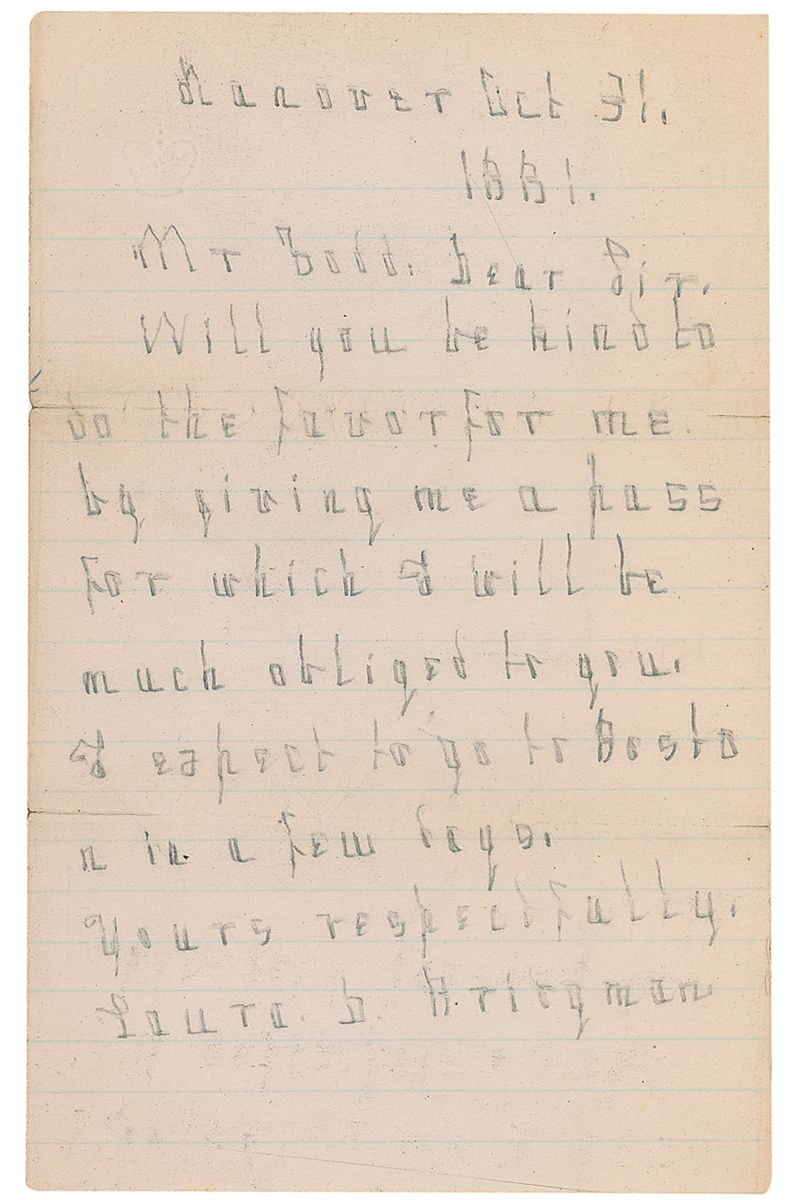 Hanover Oct 31.
1881.
Mr Todd. Dear Sir.
Will you be kind to
do the favor for me.
by giving me a pass
for which I will be
much obliged to you.
I expect to go to Bosto
n in a few days.
Yours respectfully.
Laura D. Bridgman